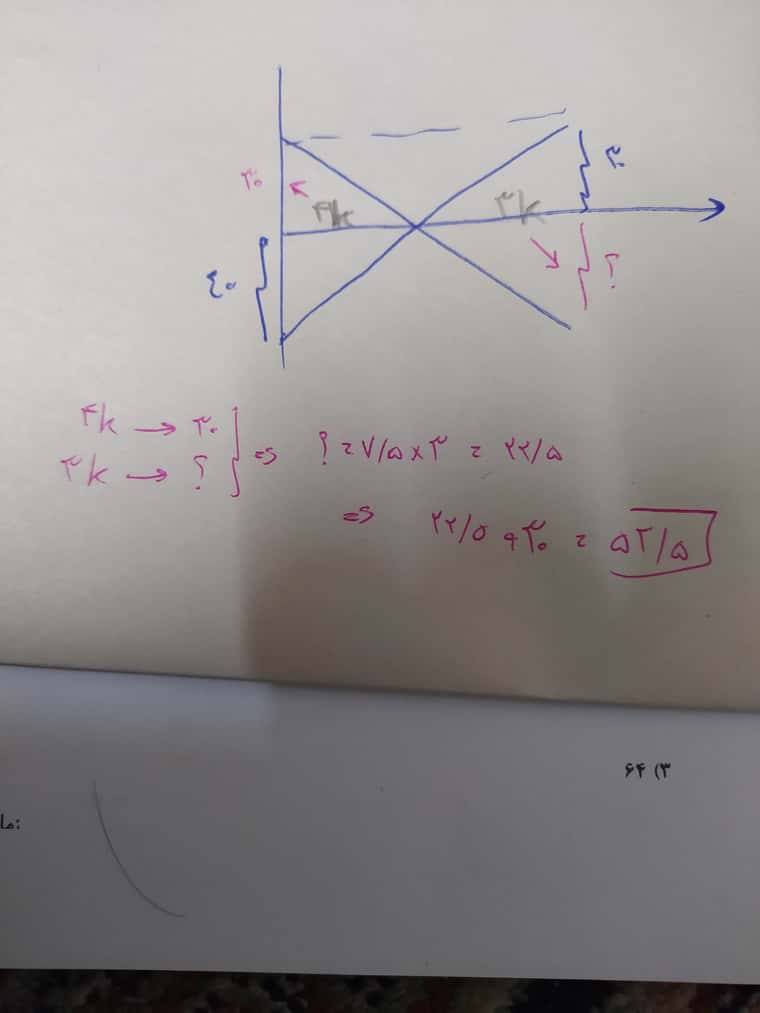 ۳۰
۴k
۳k
۳۰
٤۰
؟
۴k → ۳۰
۳k → ؟
=> ؟ = ۷/۵ × ۳ = ۲۲/۵
=> ۲۲/۵ + ۳۰ = ۵۲/۵
۳) ۶۴
ما: